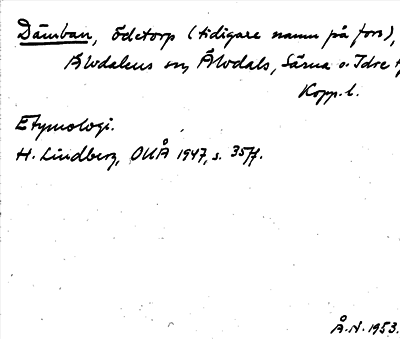 Dämban, ödetorp (tidigare namn på fors),
Älvdalens sn, Älvdals, Särna o. Idre t
Kopp. l.
Etymologi.
H. Lindberg, OUÅ 1947, s. 35ff.
Å.N. 1953.